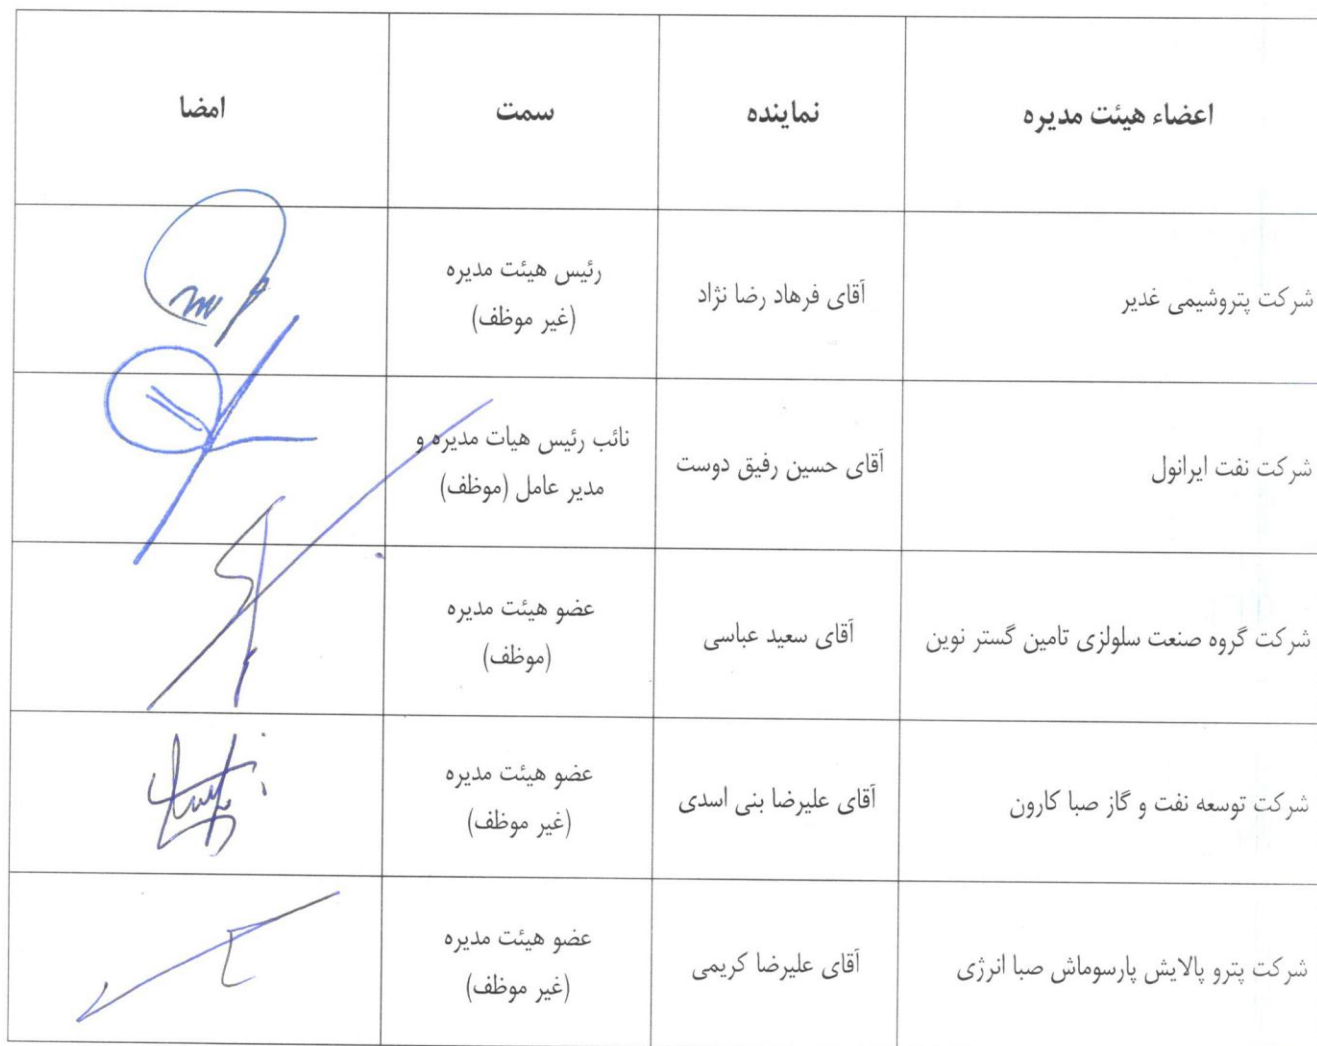 اعضاء هیئت مدیره
نماینده
سمت
امضا
شرکت پتروشیمی غدیر
آقای فرهاد رضا نژاد
رئیس هیئت مدیره
(غیر موظف)
شرکت نفت ایرانول
آقای حسین رفیق دوست
نائب رئیس هیات مدیره و
مدیر عامل (موظف)
شرکت گروه صنعت سلولزی تامین گستر نوین
آقای سعید عباسی
عضو هیئت مدیره
(موظف)
شرکت توسعه نفت و گاز صبا کارون
آقای علیرضا بنی اسدی
عضو هیئت مدیره
(غیر موظف)
شرکت پترو پالایش پارسوماش صبا انرژی
آقای علیرضا کریمی
عضو هیئت مدیره
(غیر موظف)